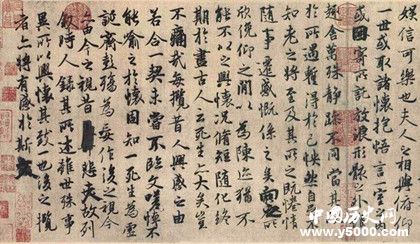 娛信可樂也夫人之相與俯仰
一世或取諸懷抱悟言一室之
或因寄所託放浪形骸之
趣舍萬殊靜躁不同當其
於所遇暫得於己怏然自
知老之將至及其所之既惓情
隨事遷感慨係之矣向之所
欣俛仰之間以為陳迹猶不
能不以之興懷況脩短隨化終
期於盡古人云死生亦大矣豈
不痛哉每攬昔人興感之由
若合一契未嘗不臨文嗟悼不
能喻之於懷固知一死生為虛
誕齊彭殤為妄作後之視今
亦由今之視昔悲夫故列
敘時人錄其所述雖世殊事
異所以興懷其致一也後之攬
者亦將有感於斯文
中国历史网
www.y5000.com